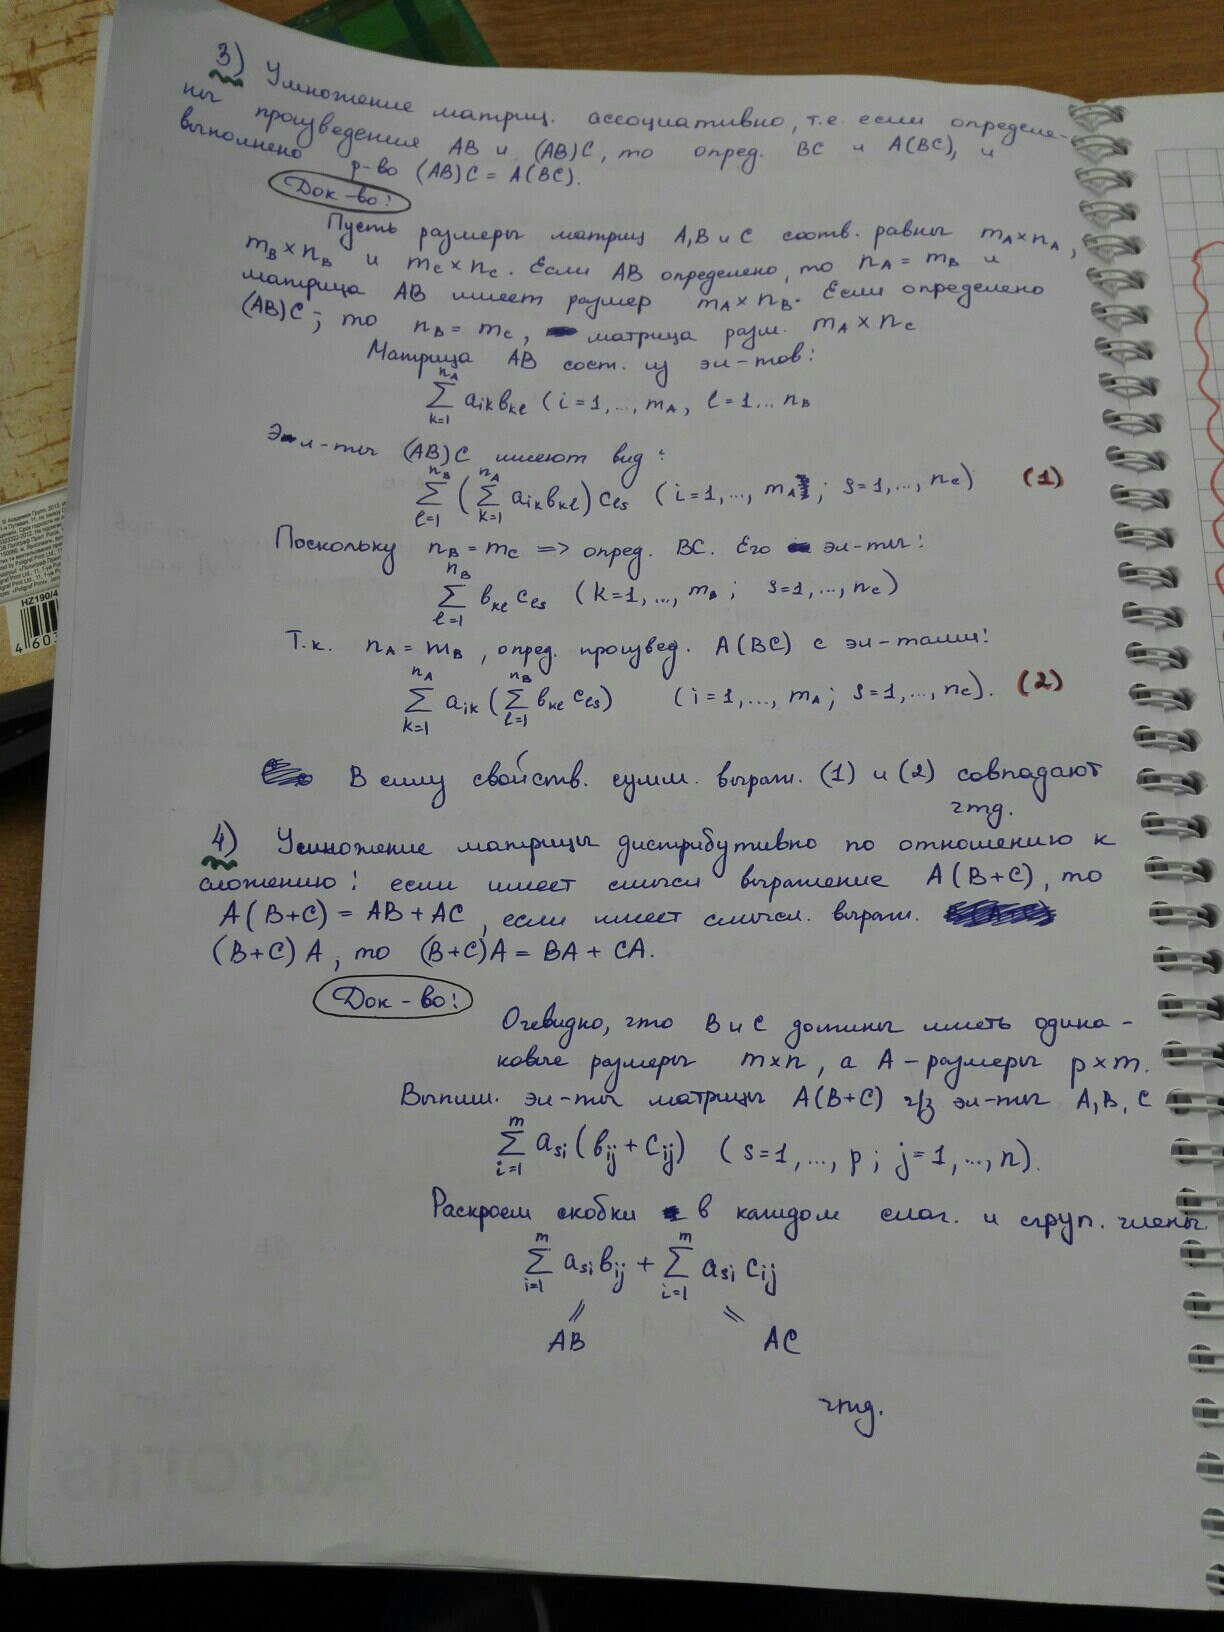 3) Умножение матриц. ассоциативно, т.е. если определе-
ны произведения AB и (AB)C, то опред. BC и A(BC), и
выполнено р-во (AB)C = A(BC).
Док-во:
Пусть размеры матриц A, B и C соотв. равны m_A×n_A,
m_B×n_B и m_C×n_C. Если AB определено, то n_A = m_B и
матрица AB имеет размер m_A×n_B. Если определено
(AB)C, то n_B = m_C, матрица разм. m_A×n_C
Матрица AB сост. из эл-тов:
∑_{k=1}^{n_A} a_{ik}b_{kl} (i=1,…,m_A, l=1…n_B
Эл-ты (AB)C имеют вид:
∑_{l=1}^{n_B} (∑_{k=1}^{n_A} a_{ik}b_{kl}) c_{ls} (i=1,…,m_A; s=1,…,n_C) (1)
Поскольку n_B = m_C => опред. BC. Его эл-ты:
∑_{l=1}^{n_B} b_{kl}c_{ls} (k=1,…,m_B; s=1,…,n_C)
Т.к. n_A = m_B, опред. произвед. A(BC) с эл-тами:
∑_{k=1}^{n_A} a_{ik} (∑_{l=1}^{n_B} b_{kl}c_{ls}) (i=1,…,m_A; s=1,…,n_C). (2)
В силу свойств. сумм. выраж. (1) и (2) совпадают
чтд.
4) Умножение матрицы дистрибутивно по отношению к
сложению: если имеет смысл выражение A(B+C), то
A(B+C) = AB + AC, если имеет смысл. выраж.
(B+C)A, то (B+C)A = BA + CA.
Док-во:
Очевидно, что B и C должны иметь одина-
ковые размеры m×n, а A – размеры p×m.
Выпиш. эл-ты матрицы A(B+C) ч/з эл-ты A, B, C
∑_{i=1}^{m} a_{si}(b_{ij} + c_{ij}) (s=1,…,p; j=1,…,n).
Раскроем скобки в каждом слаг. и сгруп. члены
∑_{i=1}^{m} a_{si}b_{ij} + ∑_{i=1}^{m} a_{si}c_{ij}
= =
AB AC
чтд.
HZ190/4